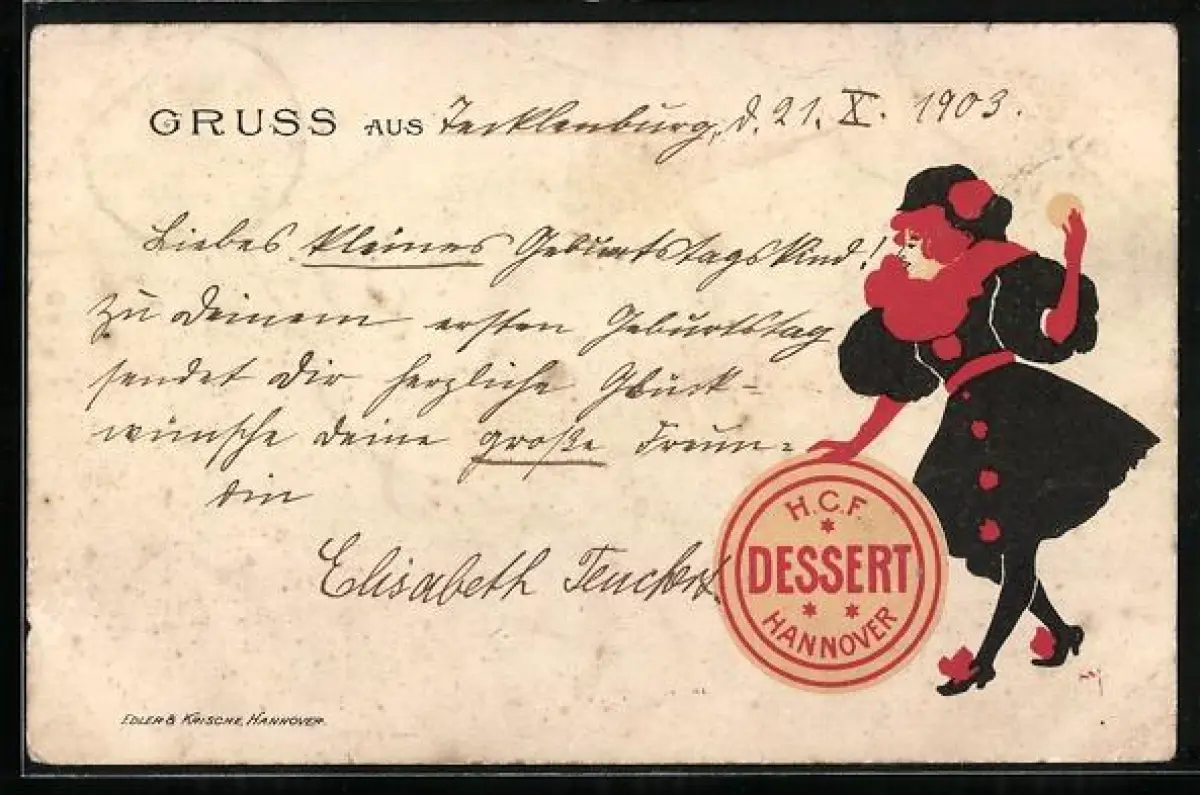 GRUSS AUS Tecklenburg, d. 21. X. 1903.
Liebes kleines Geburtstagskind!
Zu Deinem ersten Geburtstag
sendet Dir herzliche Glück-
wünsche Deine große Freun-
din
Elisabeth
H.C.F.
DESSERT
HANNOVER
EDLER & KRISCHE, HANNOVER.